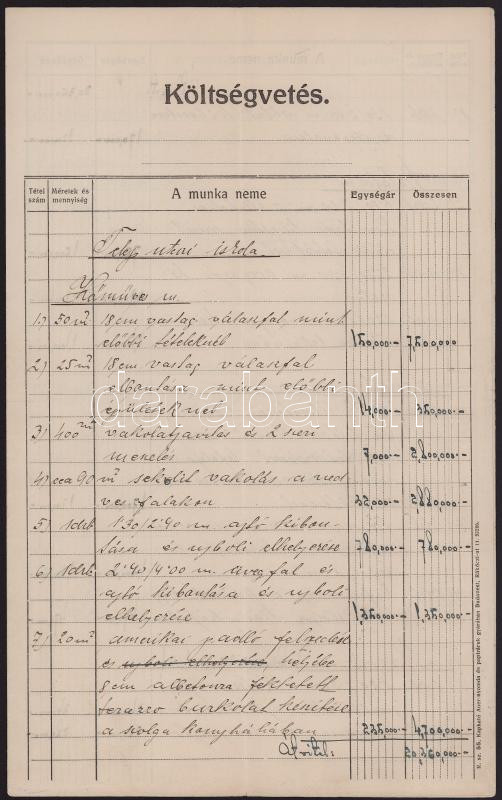 Költségvetés.
Tétel szám
Méretek és mennyiség
A munka neme
Egységár
Összesen
Telep utcai iskola.
Kőműves m.
1.) 50 m² 18 cm vastag válaszfal mint
előbbi tételeknél 150,000.- 7,500,000
2.) 25 m² 18 cm vastag válaszfal
elbontása mint előbbi
épületeknél 14,000.- 350,000.-
3.) 400 m² vakolatjavitás és 2 szeri
meszelés 7,000.- 2,800,000.-
4.) cca 90 m² vakolás a ned
ves falakon 32,000.- 2,880,000.-
5.) 1 drb 1.30/2.40 m. ajtó kibon-
tása és ujboli elhelyezése 780,000.- 780,000.-
6.) 1 drb 2.40/4.00 m. üvegfal és
ajtó kibontása és ujboli
elhelyezése 1,350,000.- 1,350,000.-
7.) 20 m² amerikai padló felszedése
és ujboli elhelyezése helyébe
8 cm albetonra fektetett
terazzo burkolat készitése
a szolga konyhájában 235,000.- 4,700,000.-
Átvitel: 20,360,000.-
darabanth
V. sz. 5/5. Kapható Auer-nyomda és papiráruk gyárában Budapest, Rákóczi-út 11. 5289.